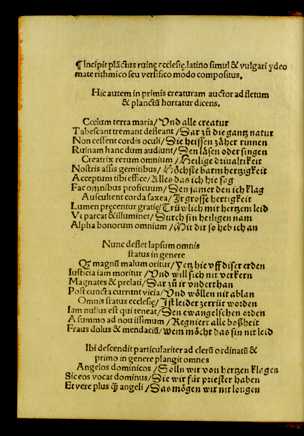 ¶Incipit plāctus ruine ecclesię. latino simul & vulgari ydeo
mate rithmico seu versifico modo compositus.
Hic autem in primis creaturam auctor ad fletum
& planctū hortatur dicens.
Cœlum terra maria/ Vnd alle creatur
Tabescant tremant defleant/ Dar zū die gantz natur
Non cessent cordis oculi/ Die heissen zäher runnen
Ruinam hanc dum audiunt/ Den läsen oder singen
Creatrix rerum omnium/ Heilige driualtikeit
Nostris assis gemitibus/ Höchste barmhertzigkeit
Acceptum tibi effice/ Alles das ich hie sag
Fac omnibus proficuum/ Den jamer den ich klag
Auscultent corda saxea/ Jr grosse hertigkeit
Lumen precentur gratię/ Trüwlich mit hertzem leid
Vt parcat & illuminet/ Durch sin heiligen nam
Alpha bonorum omnium/ Mit dir so heb ich an
Nunc deflet lapsum omnis
status in genere
Oz magnū malum oritur/ Yetz hie vff diser erden
Iusticia iam moritur/ Vnd will sich nit verkern
Magnates & prelati/ Dar zū ir vnderthan
Post cuncta currunt vicia/ Vnd wöllen nit ablan
Omnis status ecclesię/ Ist leider zerrüt worden
Iam nullus est qui teneat/ Den ewangelschen orden
A summo ad nouissimum/ Regniert alle boßheit
Fraus dolus & mendaciū/ Wem möcht das sin nit leid
Ibi descendit particulariter ad clerū ordinatū &
primo in genere plangit omnes
Angelos dominicos/ Solln wir von hertzen klagen
Siceos vocat dominus/ Die wir für priester haben
Et vere plus q̄ angeli/ Das mögen wir nit lougen